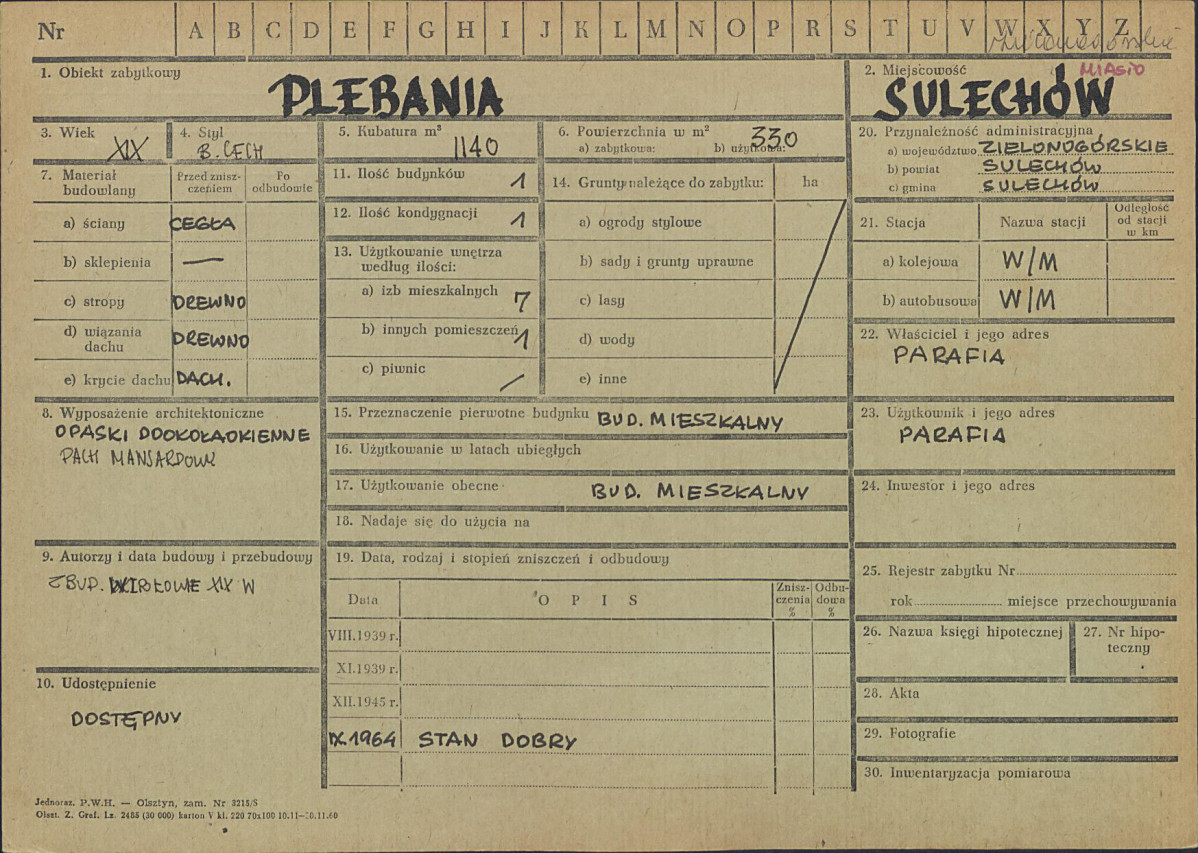 Nr A B C D E F G H I J K L M N O P R S T U V W X Y Z
1. Obiekt zabytkowy
PLEBANIA
2. Miejscowość MIASTO
SULECHÓW
3. Wiek
XIX
4. Styl
B. CECH
5. Kubatura m³
1140
6. Powierzchnia w m²
a) zabytkowa: b) użytkowa: 330
7. Materiał budowlany
Przed zniszczeniem
Po odbudowie
a) ściany CEGŁA
b) sklepienia —
c) stropy DREWNO
d) wiązania dachu DREWNO
e) krycie dachu DACH.
8. Wyposażenie architektoniczne
OPASKI DOOKOŁAOKIENNE
DACH MANSARDOWY
9. Autorzy i data budowy i przebudowy
ZBUD. W XIX W
10. Udostępnienie
DOSTĘPNY
11. Ilość budynków 1
12. Ilość kondygnacji 1
13. Użytkowanie wnętrza
według ilości:
a) izb mieszkalnych 7
b) innych pomieszczeń 1
c) piwnic /
14. Grunty należące do zabytku: ha
a) ogrody stylowe
b) sady i grunty uprawne
c) lasy
d) wody
e) inne
15. Przeznaczenie pierwotne budynku BUD. MIESZKALNY
16. Użytkowanie w latach ubiegłych
17. Użytkowanie obecne BUD. MIESZKALNY
18. Nadaje się do użycia na
19. Data, rodzaj i stopień zniszczeń i odbudowy
Data O P I S Zniszczenia % Odbudowa %
VIII.1939 r.
XI.1939 r.
XII.1945 r.
IX.1964 STAN DOBRY
20. Przynależność administracyjna
a) województwo ZIELONOGÓRSKIE
b) powiat SULECHÓW
c) gmina SULECHÓW
21. Stacja Nazwa stacji Odległość od stacji w km
a) kolejowa W/M
b) autobusowa W/M
22. Właściciel i jego adres
PARAFIA
23. Użytkownik i jego adres
PARAFIA
24. Inwestor i jego adres
25. Rejestr zabytku Nr
rok miejsce przechowywania
26. Nazwa księgi hipotecznej
27. Nr hipoteczny
28. Akta
29. Fotografie
30. Inwentaryzacja pomiarowa
Jednoraz. P.W.H. — Olsztyn, zam. Nr 3215/S
Olszt. Z. Graf. Lz. 2485 (30 000) karton V kl. 220 70x100 10.11—30.11.60